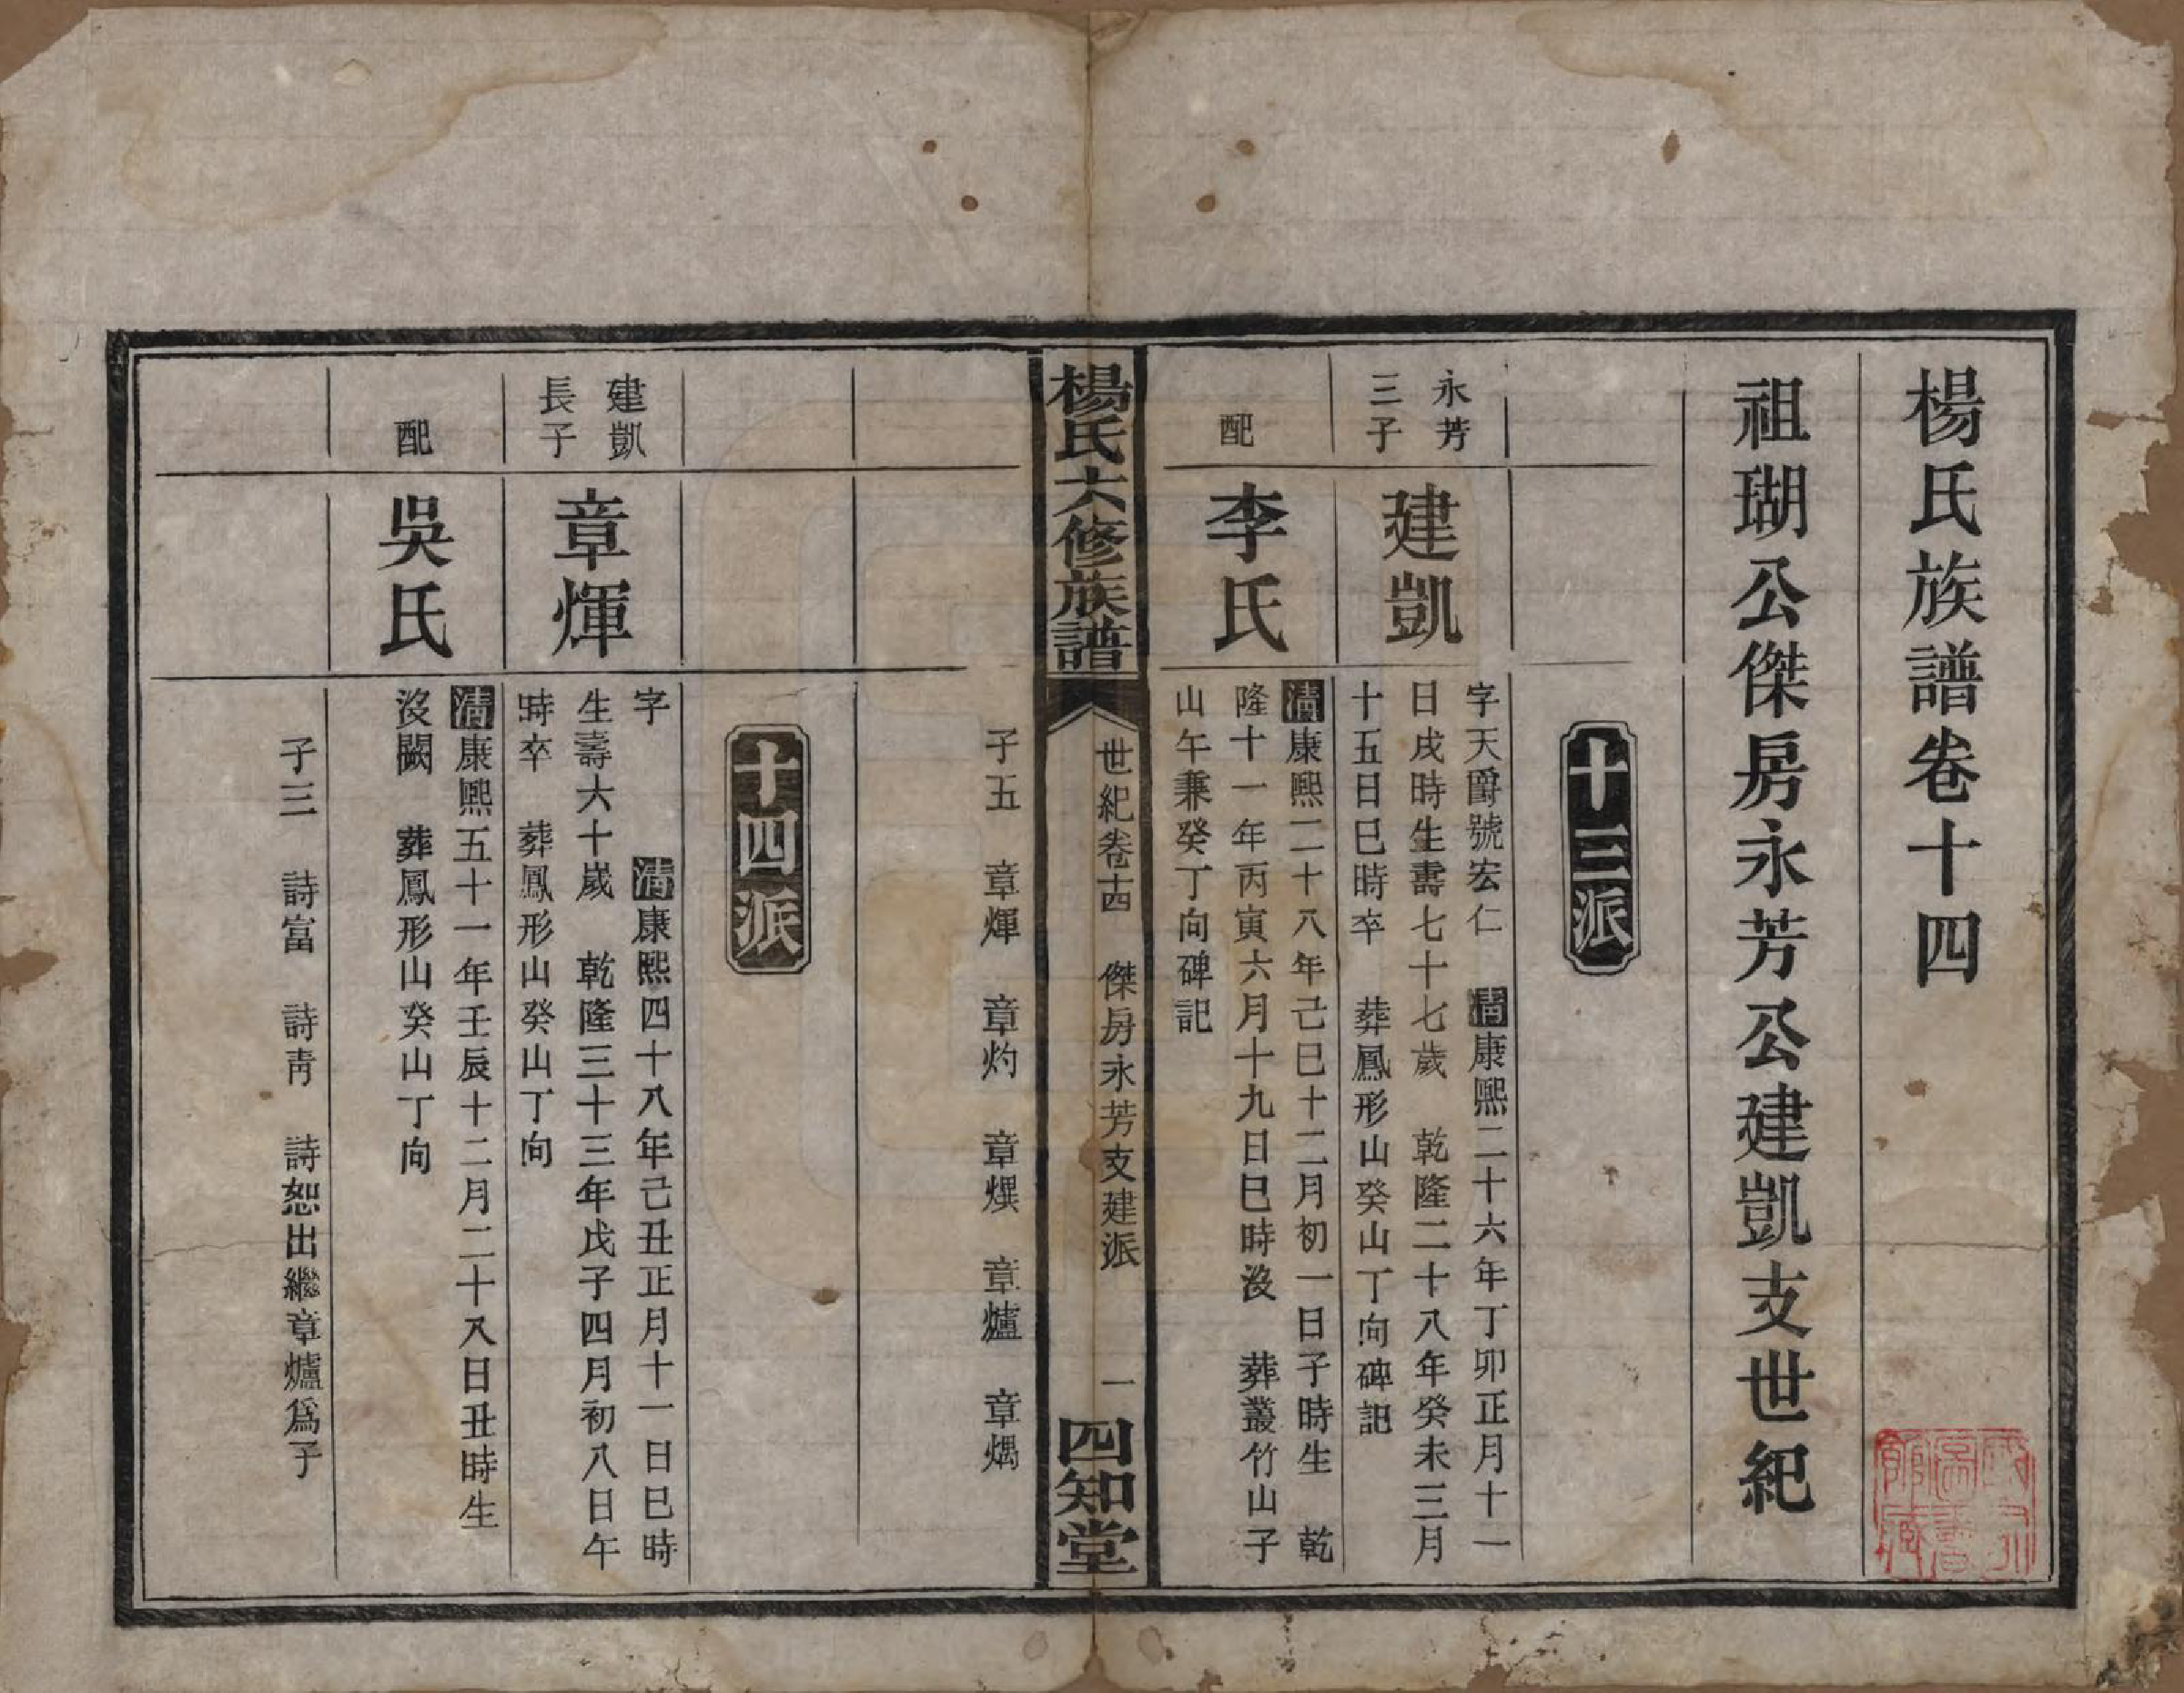 楊氏族譜卷十四
祖瑚公傑房永芳公建凱支世紀
十三派
永芳
三子
建凱
字天爵號宏仁　清康熙二十六年丁卯正月十一
日戌時生壽七十七歲　乾隆二十八年癸未三月
十五日巳時卒　葬鳳形山癸山丁向碑記
配
李氏
清康熙二十八年己巳十二月初一日子時生　乾
隆十一年丙寅六月十九日巳時沒　葬叢竹山子
山午兼癸丁向碑記
楊氏六修族譜
世紀卷十四　傑房永芳支建派
一
四知堂
子五　章煇　章灼　章熼　章爐　章燤
十四派
建凱
長子
章煇
字　清康熙四十八年己丑正月十一日巳時
生壽六十歲　乾隆三十三年戊子四月初八日午
時卒　葬鳳形山癸山丁向
配
吳氏
清康熙五十一年壬辰十二月二十八日丑時生
沒闕　葬鳳形山癸山丁向
子三　詩富　詩靑　詩恕出繼章爐爲子